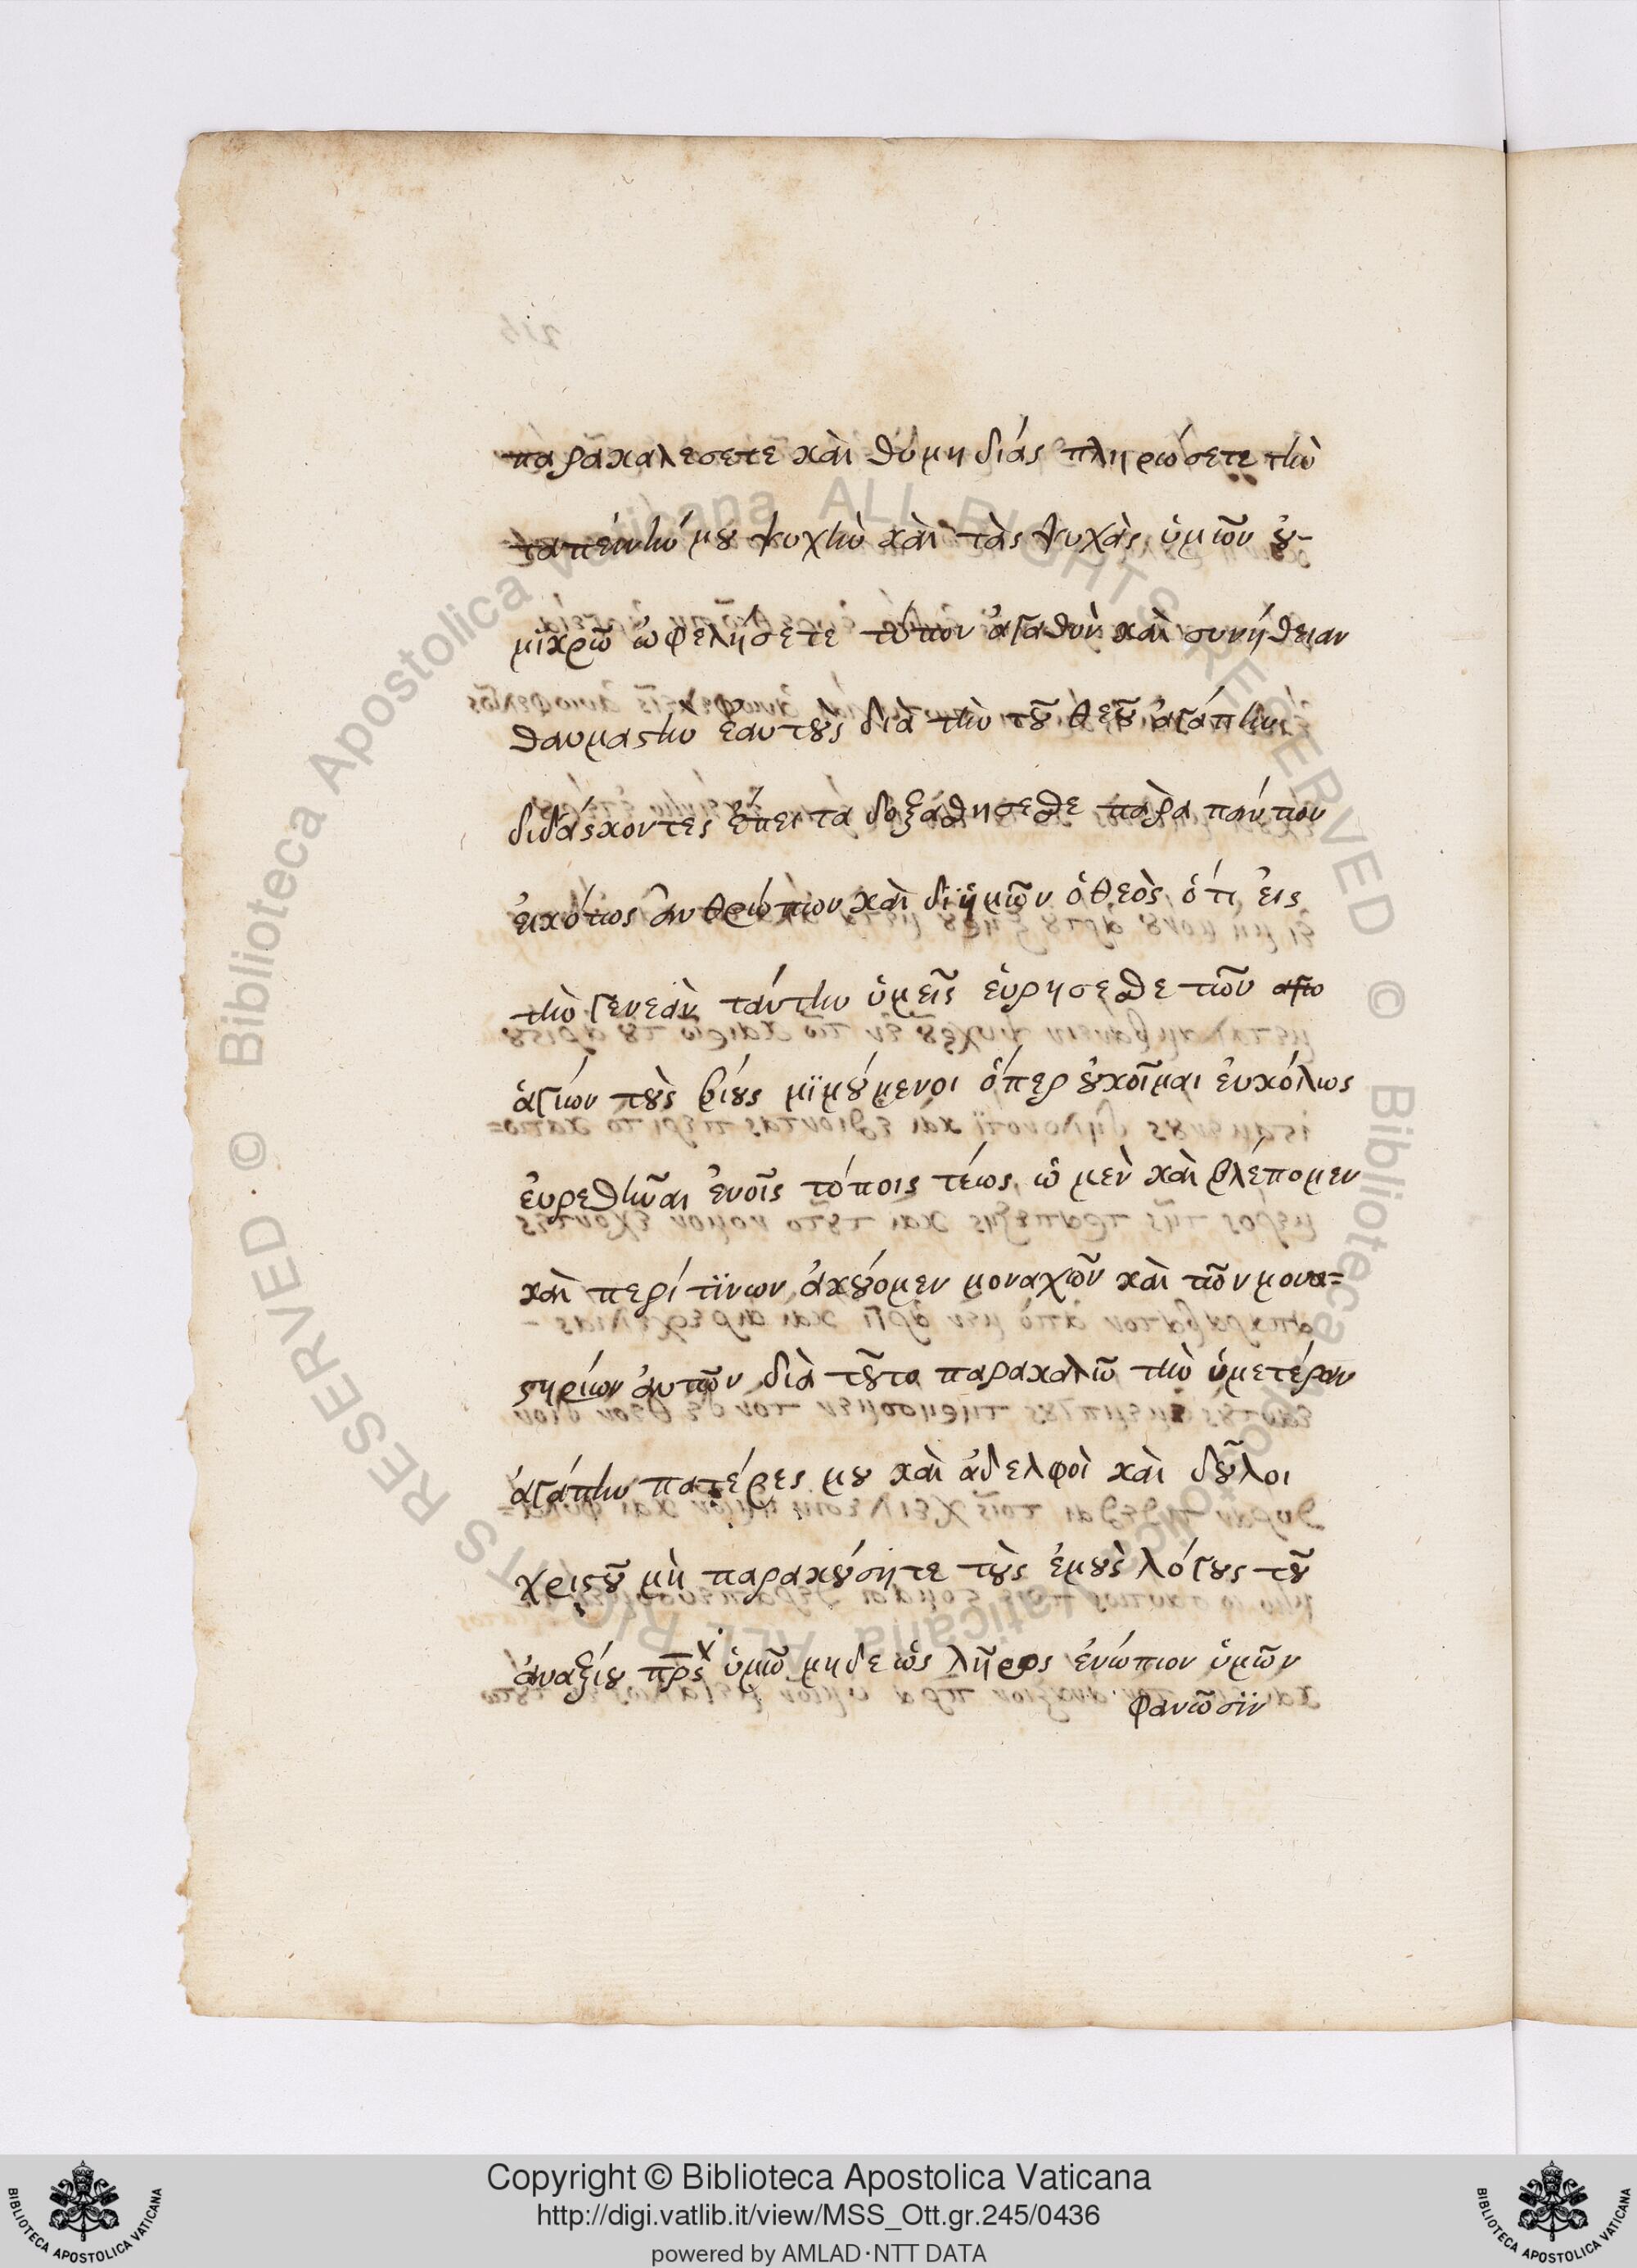 παρακαλεσετε καὶ θυμηδίας πληρώσετε τὴν
ταπεινήν μου ψυχὴν καὶ τὰς ψυχὰς ὑμῶν ȣ-
μικρῶ ὠφελήσετε τύπον ἀγαθὸν καὶ συνήθειαν
θαυμαστὴν ἑαυτȣς διὰ τὴν τȣ͂ θεȣ͂ ἀγάπην
διδάσκοντες ἔπειτα δοξάθησεσθε παρα πάντων
ἐικότως ἀνθρώπων καὶ δϊἡμῶν ὁθεὸς ὁτι ἐις
τὴν γενεὰν ταύτην ὑμεῖς ἑυρησεσθε τῶν απο
ἁγίων τȣ̀ς βίȣς μϊμȣ́μενοι ὁπερ ȣ̓κοῖμαι ἐυκόλως
ἐυρεθῆναι ἐνοῖς τόποις τέως ὡ μεν καὶ βλέπομεν
καὶ περί τϊνων ἀκȣ́ομεν μοναχῶν καὶ τῶν μονα=
στηρίων ἀυτῶν διὰ τȣ͂το παρακαλῶ τὴν ὑμετέραν
ἀγάπην πατέρες μȣ καὶ ἀδελφοὶ καὶ δȣ͂λοι
χριστȣ͂ μὴ παρακȣ́σητε τȣ̀ς ἐμȣ̀ς λόγȣς τȣ͂
ἀναξίȣ πρς ὑμῶ μηδε ὡς λῆρος ἐνώπιον ὑμῶν
φανῶσϊν
Copyright © Biblioteca Apostolica Vaticana
http://digi.vatlib.it/view/MSS_Ott.gr.245/0436
powered by AMLAD·NTT DATA